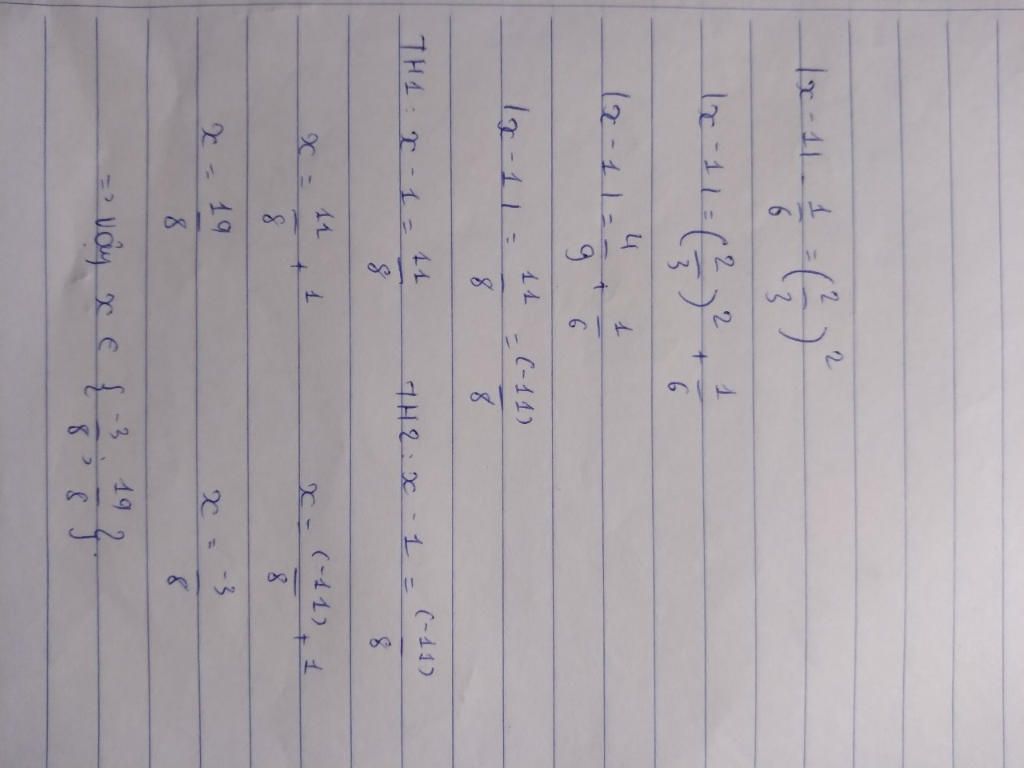 |x - 1| - 1/6 = (2/3)²
|x - 1| = (2/3)² + 1/6
|x - 1| = 4/9 + 1/6
|x - 1| = 11/8 = (-11)/8
TH1: x - 1 = 11/8 TH2: x - 1 = (-11)/8
x = 11/8 + 1 x = (-11)/8 + 1
x = 19/8 x = -3/8
=> Vậy x ∈ {-3/8; 19/8}.